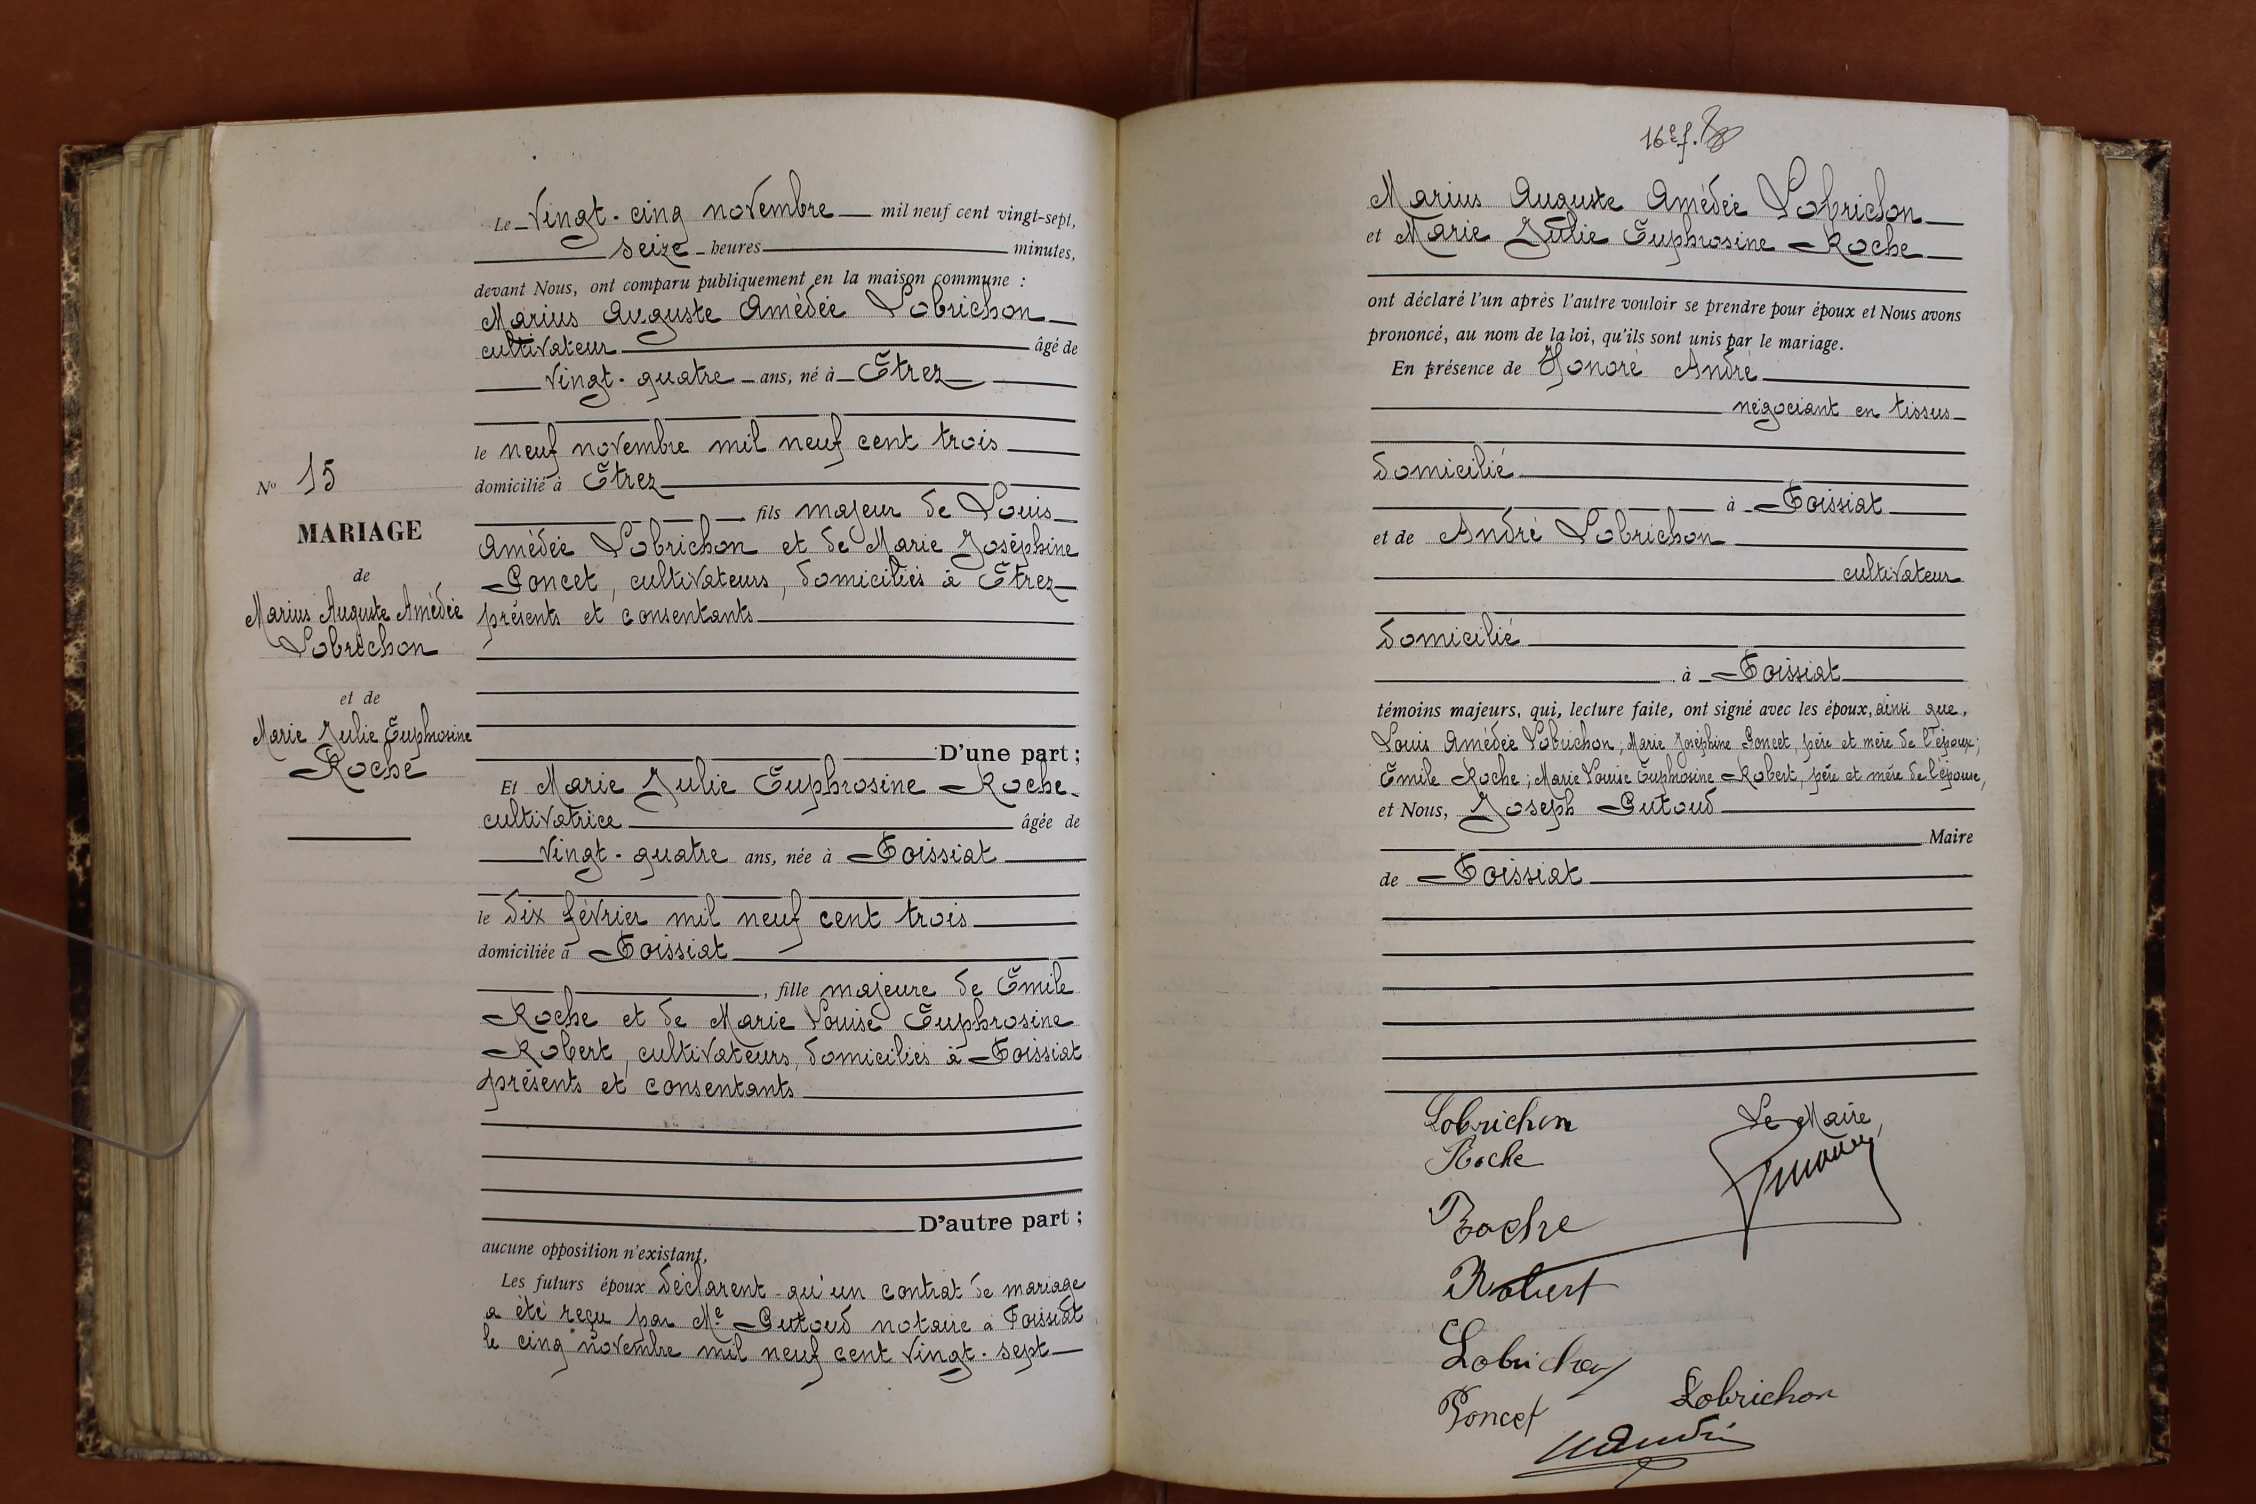 Le Vingt-cinq novembre mil neuf cent vingt-sept,
seize heures minutes,
devant Nous, ont comparu publiquement en la maison commune :
Marius Auguste Amédée Lobrichon
cultivateur âgé de
vingt-quatre ans, né à Étrez
le neuf novembre mil neuf cent trois
domicilié à Étrez
fils majeur de Louis
Amédée Lobrichon et de Marie Joséphine
Poncet, cultivateurs, domiciliés à Étrez
présents et consentants
D'une part ;
Et Marie Julie Euphrosine Roche
cultivatrice âgée de
vingt-quatre ans, née à Foissiat
le dix février mil neuf cent trois
domiciliée à Foissiat
, fille majeure de Émile
Roche et de Marie Louise Euphrosine
Robert, cultivateurs, domiciliés à Foissiat
présents et consentants
D'autre part ;
aucune opposition n'existant,
Les futurs époux déclarent qu'un contrat de mariage
a été reçu par Me Putoud notaire à Foissiat
le cinq novembre mil neuf cent vingt-sept
No 15
MARIAGE
de
Marius Auguste Amédée
Lobrichon
et de
Marie Julie Euphrosine
Roche
16e f.
Marius Auguste Amédée Lobrichon
et Marie Julie Euphrosine Roche
ont déclaré l'un après l'autre vouloir se prendre pour époux et Nous avons
prononcé, au nom de la loi, qu'ils sont unis par le mariage.
En présence de Honoré André
négociant en tissus
domicilié
à Foissiat
et de André Lobrichon
cultivateur
domicilié
à Foissiat
témoins majeurs, qui, lecture faite, ont signé avec les époux, ainsi que,
Louis Amédée Lobrichon ; Marie Joséphine Poncet, père et mère de l'époux ;
Émile Roche ; Marie Louise Euphrosine Robert, père et mère de l'épouse,
et Nous, Joseph Putoud
Maire
de Foissiat
Lobrichon
Le Maire,
Roche
Roche
Robert
Lobrichon
Poncet
Lobrichon